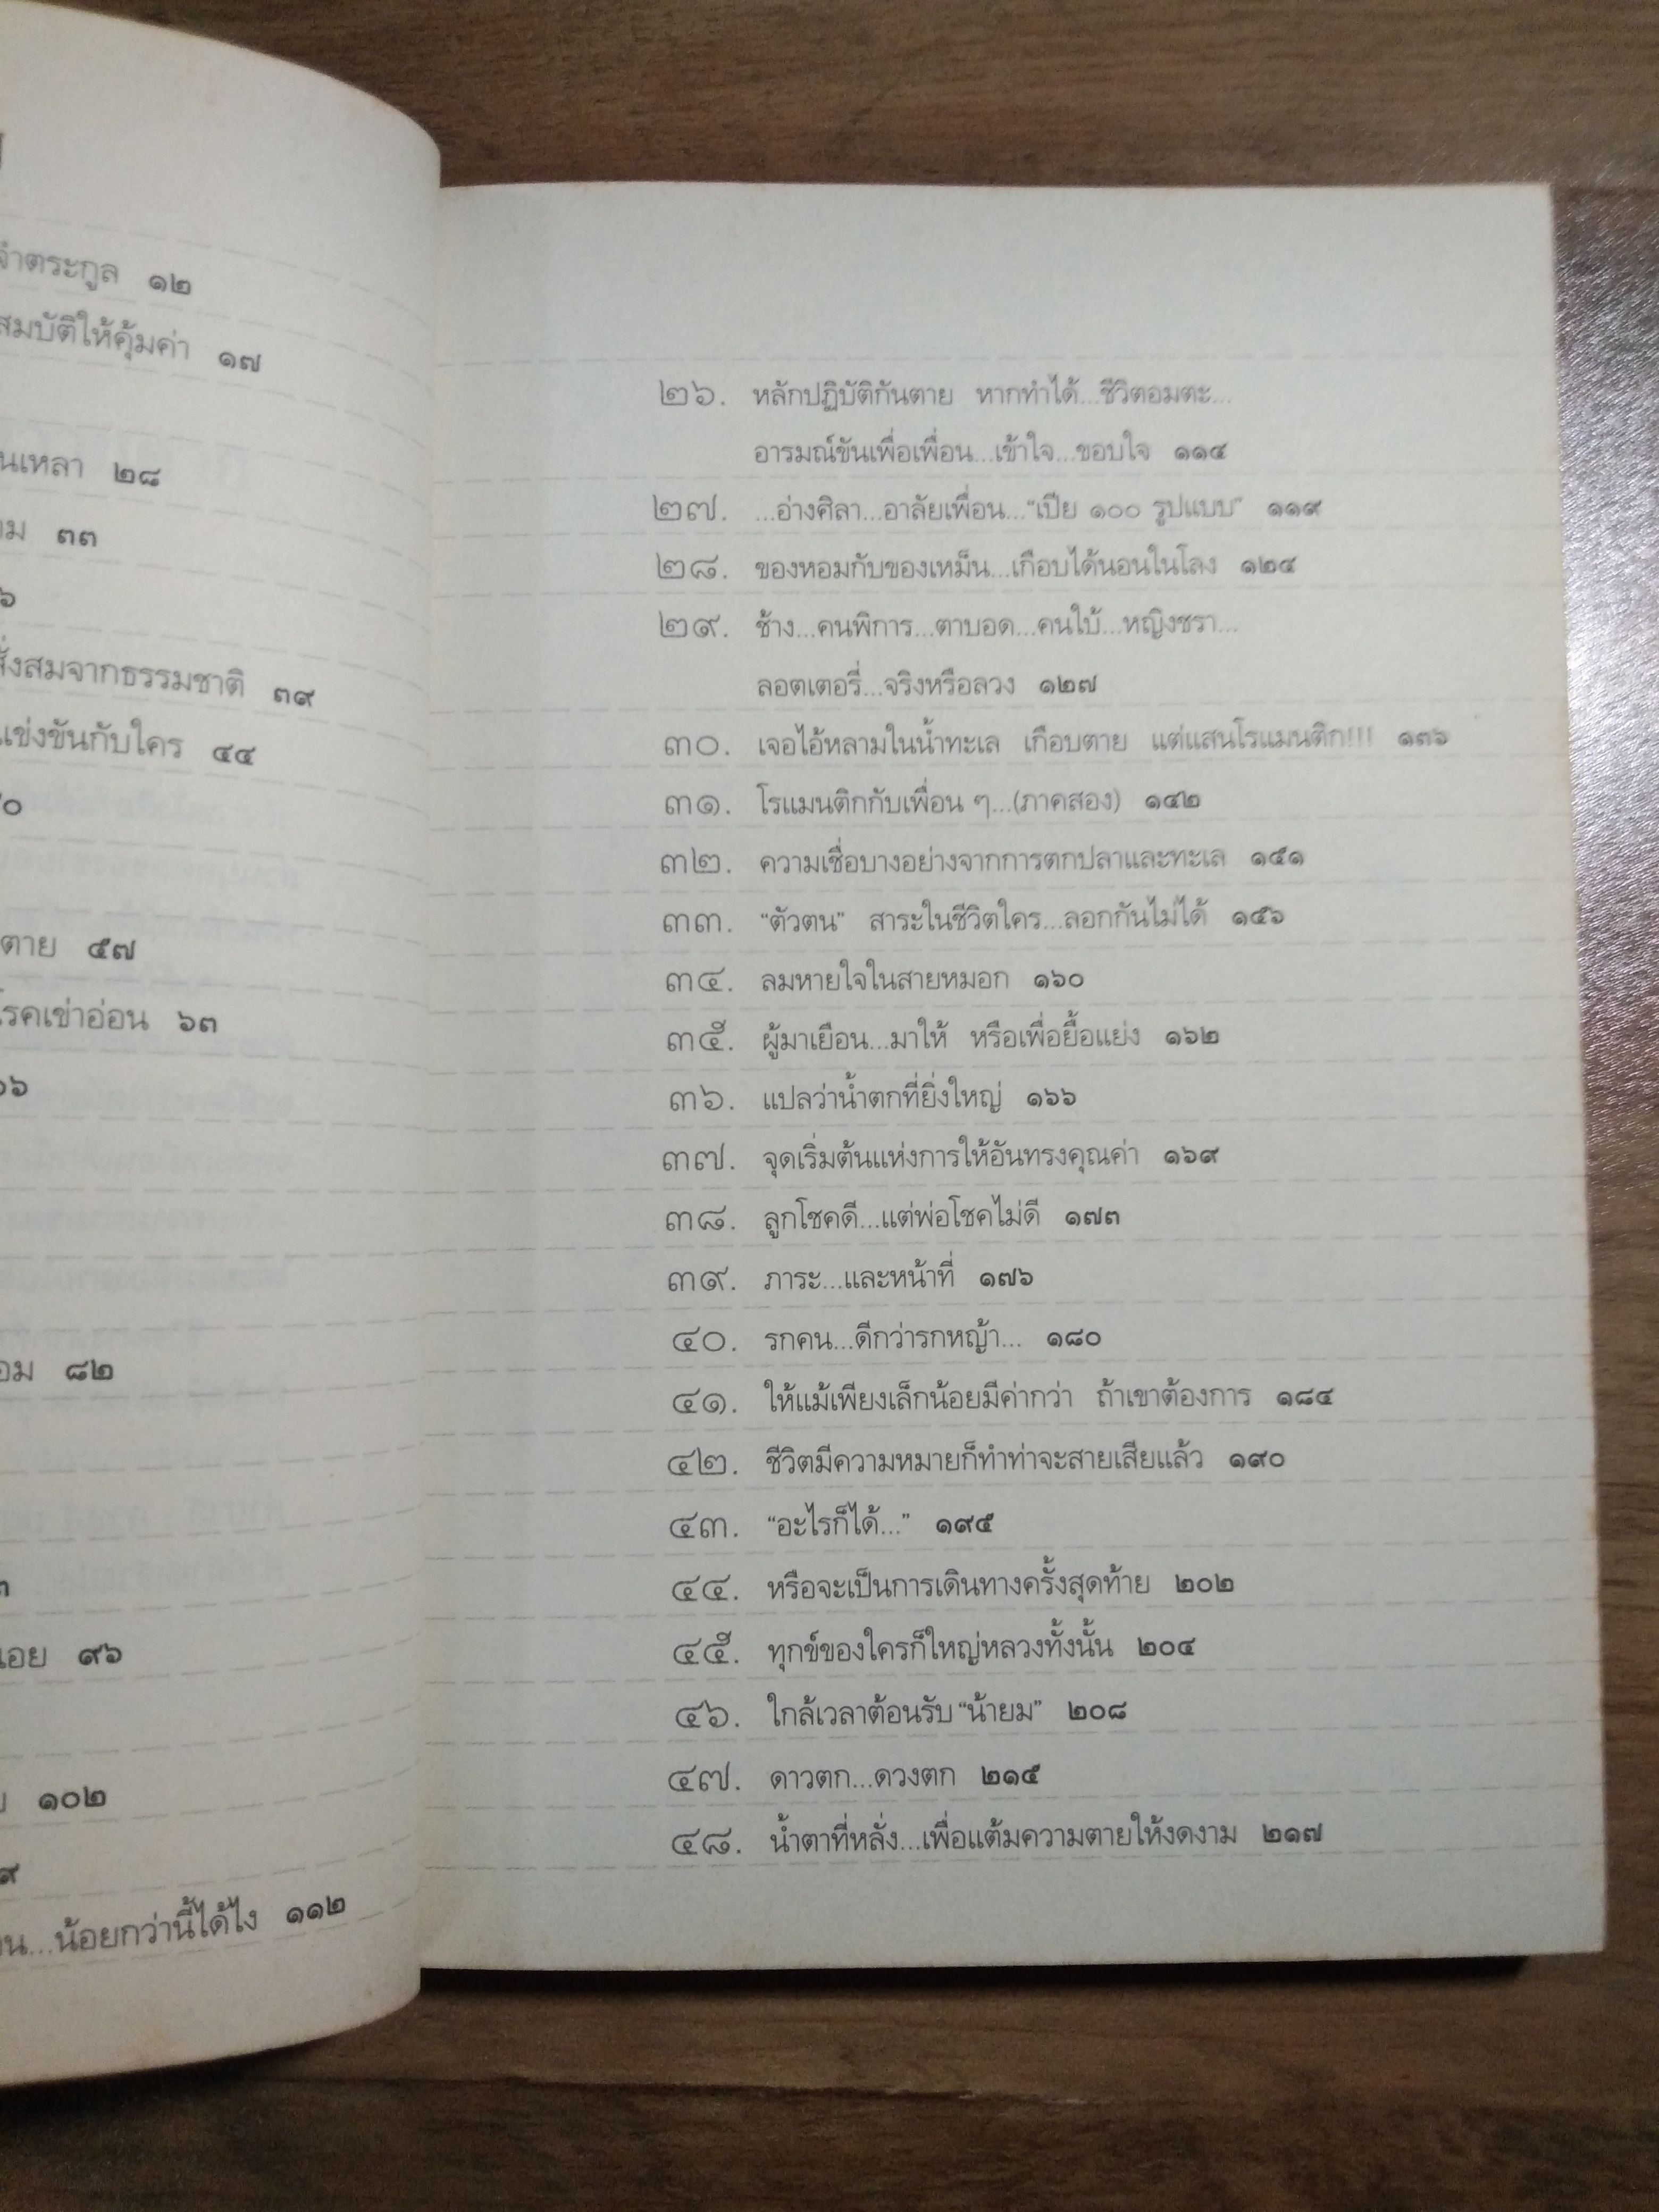 ตระกูล ๑๒
สมบัติให้คุ้มค่า ๑๗
๒๘
๓๓
สั่งสมจากธรรมชาติ ๓๙
แข่งขันกับใคร ๔๔
ตาย ๕๗
โรคเข่าอ่อน ๖๓
๘๒
๙๖
๑๐๒
...น้อยกว่านี้ได้ไง ๑๑๒
๒๖. หลักปฏิบัติกันตาย หากทำได้...ชีวิตอมตะ...
อารมณ์ขันเพื่อเพื่อน...เข้าใจ...ขอบใจ ๑๑๔
๒๗. ...อ่างศิลา...อาลัยเพื่อน..."เปีย ๑๐๐ รูปแบบ" ๑๑๙
๒๘. ของหอมกับของเหม็น...เกือบได้นอนในโลง ๑๒๔
๒๙. ช้าง...คนพิการ...ตาบอด...คนใบ้...หญิงชรา...
ลอตเตอรี่...จริงหรือลวง ๑๒๗
๓๐. เจอไอ้หลามในน้ำทะเล เกือบตาย แต่แสนโรแมนติก!!! ๑๓๖
๓๑. โรแมนติกกับเพื่อน ๆ...(ภาคสอง) ๑๔๒
๓๒. ความเชื่อบางอย่างจากการตกปลาและทะเล ๑๕๑
๓๓. "ตัวตน" สาระในชีวิตใคร...ลอกกันไม่ได้ ๑๕๖
๓๔. ลมหายใจในสายหมอก ๑๖๐
๓๕. ผู้มาเยือน...มาให้ หรือเพื่อยื้อแย่ง ๑๖๒
๓๖. แปลว่าน้ำตกที่ยิ่งใหญ่ ๑๖๖
๓๗. จุดเริ่มต้นแห่งการให้อันทรงคุณค่า ๑๖๙
๓๘. ลูกโชคดี...แต่พ่อโชคไม่ดี ๑๗๓
๓๙. ภาระ...และหน้าที่ ๑๗๖
๔๐. รกคน...ดีกว่ารกหญ้า... ๑๘๐
๔๑. ให้แม้เพียงเล็กน้อยมีค่ากว่า ถ้าเขาต้องการ ๑๘๔
๔๒. ชีวิตมีความหมายก็ทำท่าจะสายเสียแล้ว ๑๙๐
๔๓. "อะไรก็ได้..." ๑๙๕
๔๔. หรือจะเป็นการเดินทางครั้งสุดท้าย ๒๐๒
๔๕. ทุกข์ของใครก็ใหญ่หลวงทั้งนั้น ๒๐๔
๔๖. ใกล้เวลาต้อนรับ "น้ายม" ๒๐๘
๔๗. ดาวตก...ดวงตก ๒๑๕
๔๘. น้ำตาที่หลั่ง...เพื่อแต้มความตายให้งดงาม ๒๑๗